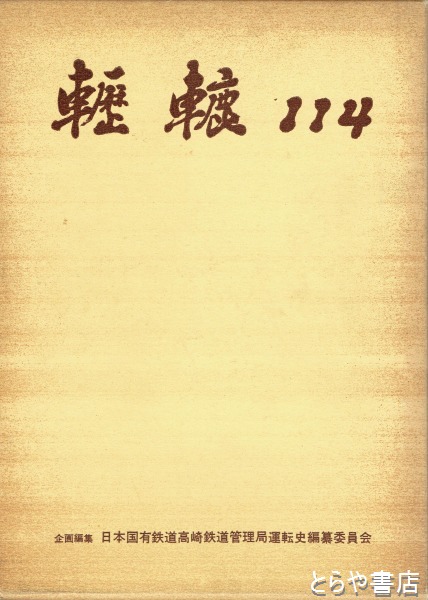 轣轆 114
企画編集 日本国有鉄道高崎鉄道管理局運転史編纂委員会
とらや書店